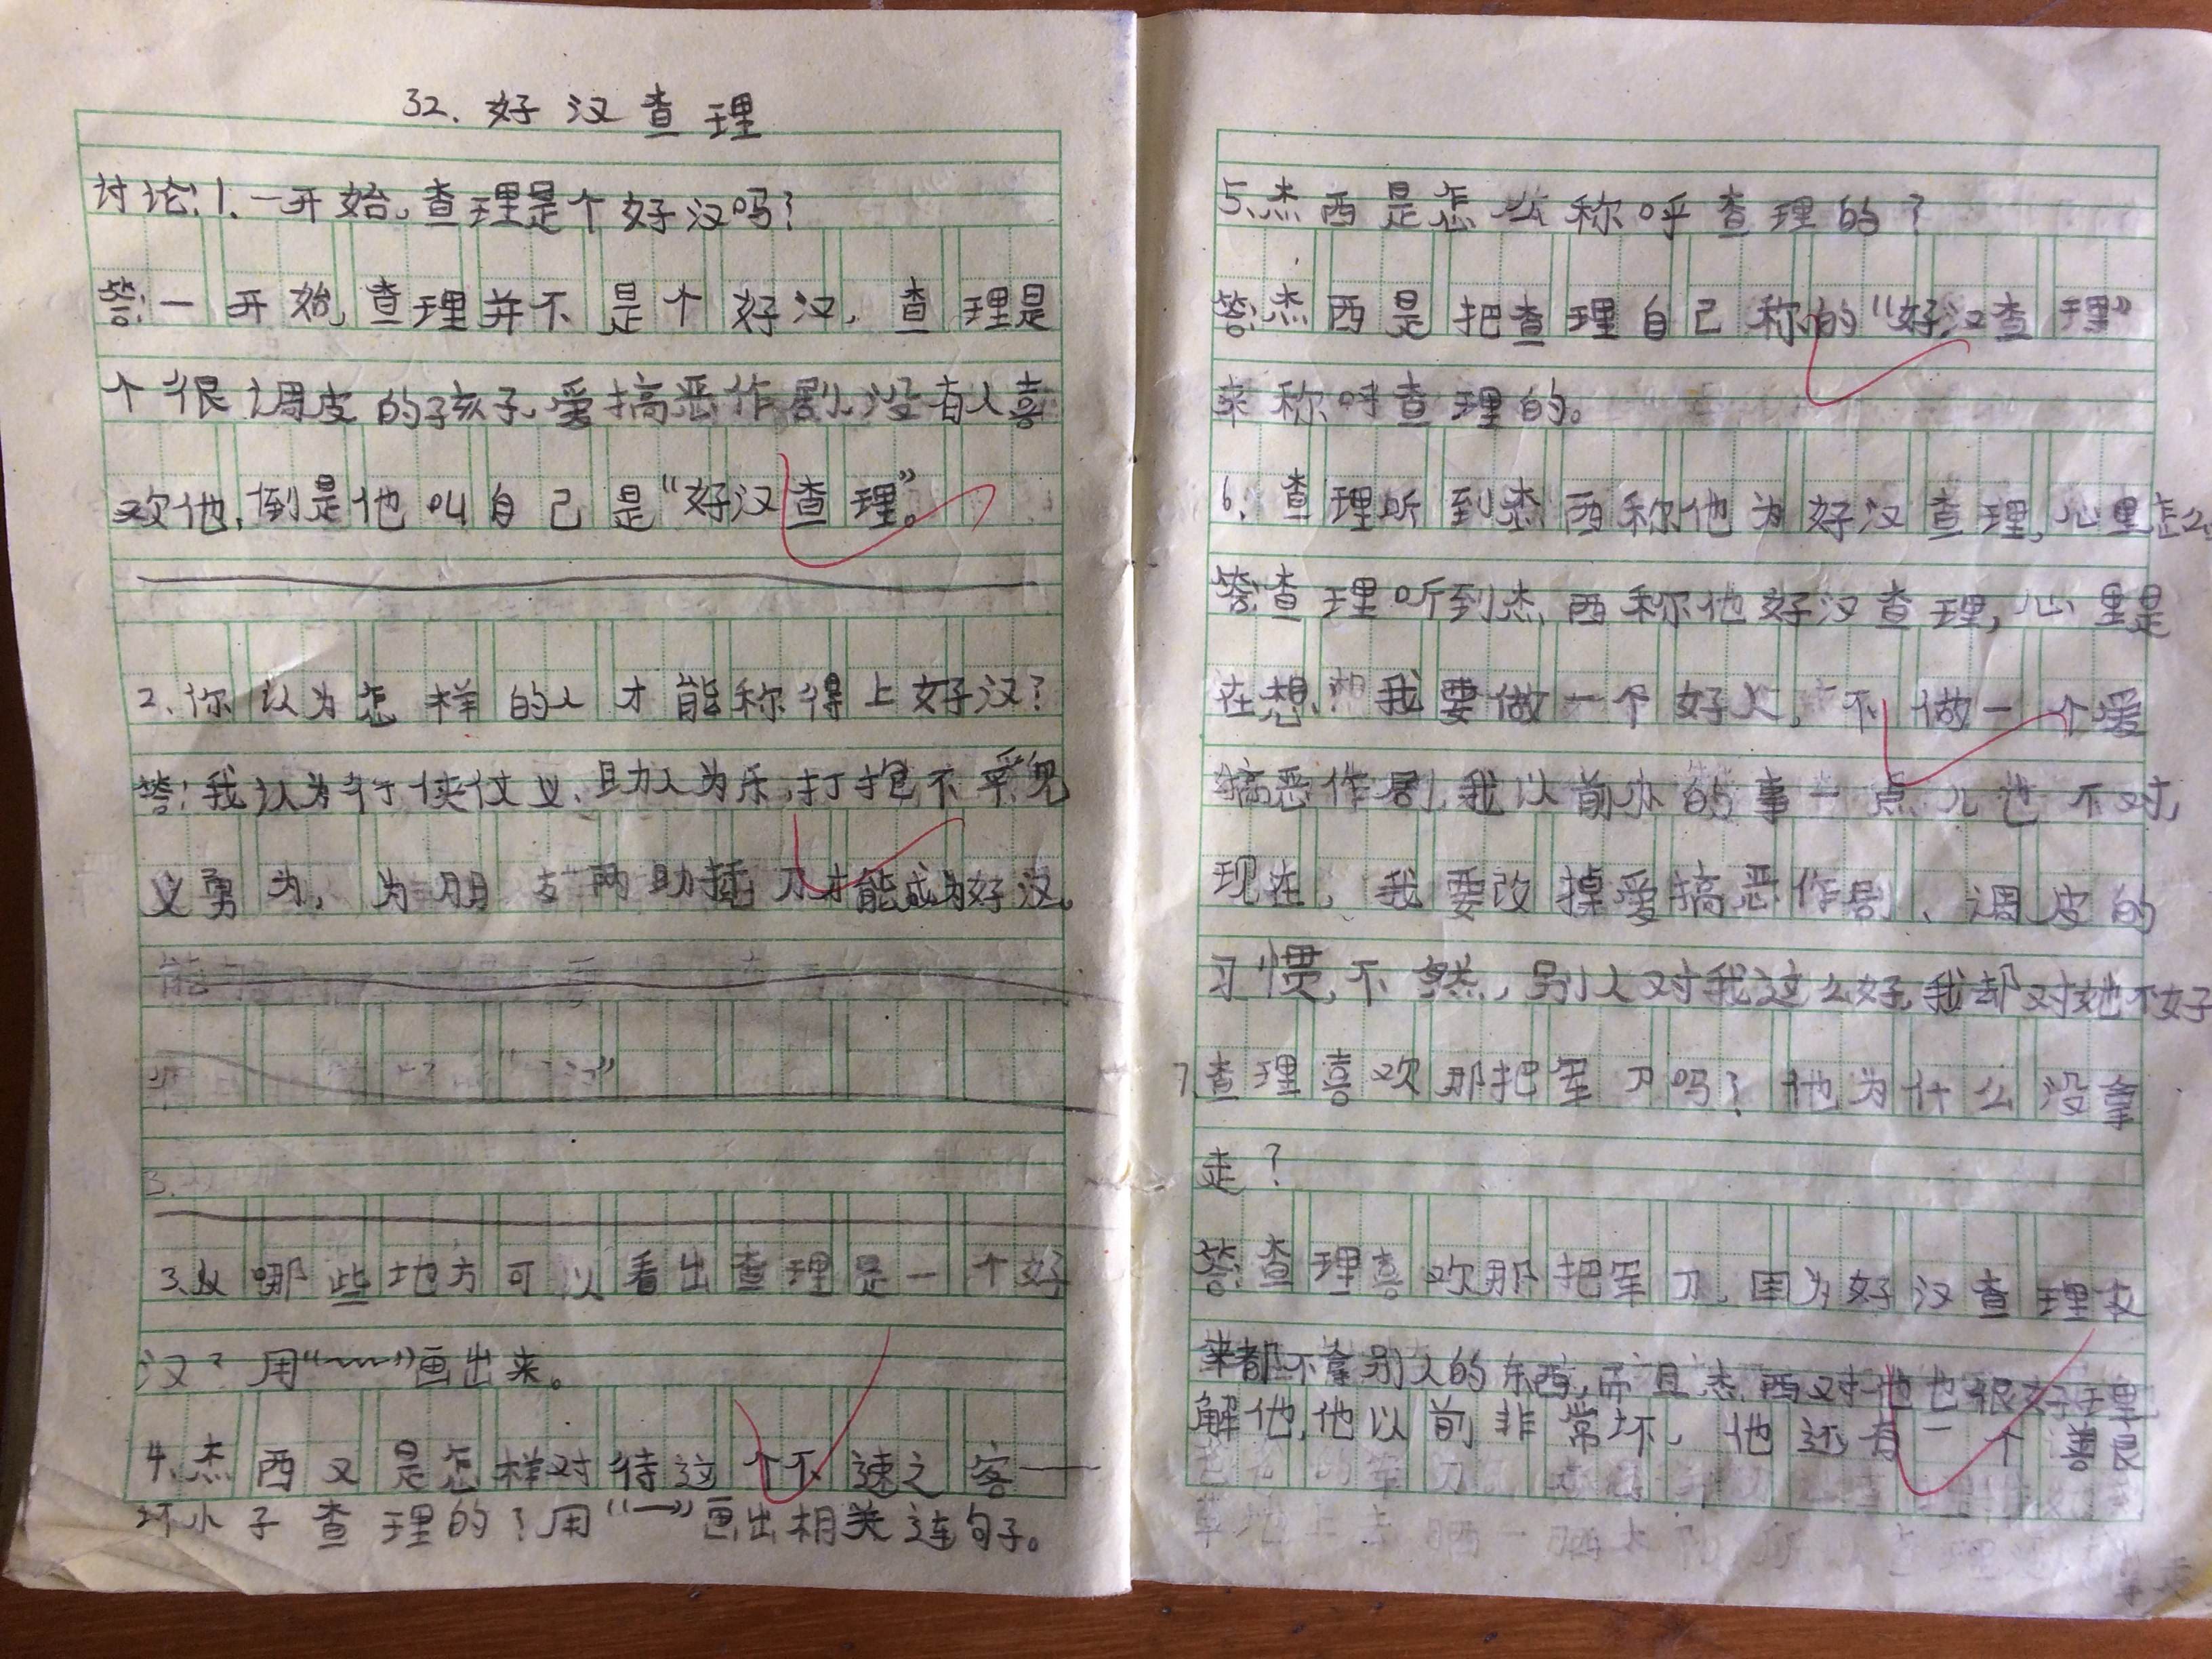 32.好汉查理
讨论:1.一开始,查理是个好汉吗?
答:一开始,查理并不是个好汉,查理是
个很调皮的孩子,爱搞恶作剧,没有人喜
欢他,倒是他叫自己是“好汉查理”。
2、你认为怎样的人才能称得上好汉?
答:我认为行侠仗义、助人为乐,打抱不平,见
义勇为,为朋友两肋插刀才能成为好汉。
3.
3、从哪些地方可以看出查理是一个好
汉?用“﹏﹏”画出来。
4、杰西又是怎样对待这个不速之客——
坏小子查理的?用“—”画出相关连句子。
5、杰西是怎么称呼查理的?
答:杰西是把查理自己称的“好汉查理”
来称呼查理的。
6、查理听到杰西称他为好汉查理,心里怎么
答:查理听到杰西称他好汉查理,心里是
在想:我要做一个好人,不做一个爱
搞恶作剧,我以前办的事一点儿也不对,
现在,我要改掉爱搞恶作剧、调皮的
习惯,不然,别人对我这么好,我却对她不好
7.查理喜欢那把军刀吗?他为什么没拿
走?
答:查理喜欢那把军刀,因为好汉查理从
来都不拿别人的东西,而且杰西对他也很好,理
解他,他以前非常坏,他还有一个善良